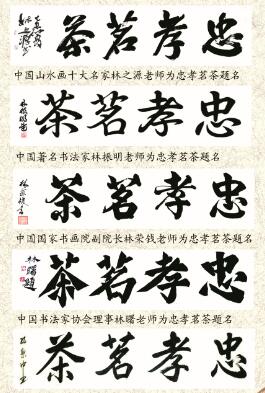 忠孝茗茶
中国山水画十大名家林之源老师为忠孝茗茶题名
忠孝茗茶
中国著名书法家林振明老师为忠孝茗茶题名
忠孝茗茶
中国国家书画院副院长林荣钱老师为忠孝茗茶题名
忠孝茗茶
林曙題
中国书法家协会理事林曙老师为忠孝茗茶题名
忠孝茗茶